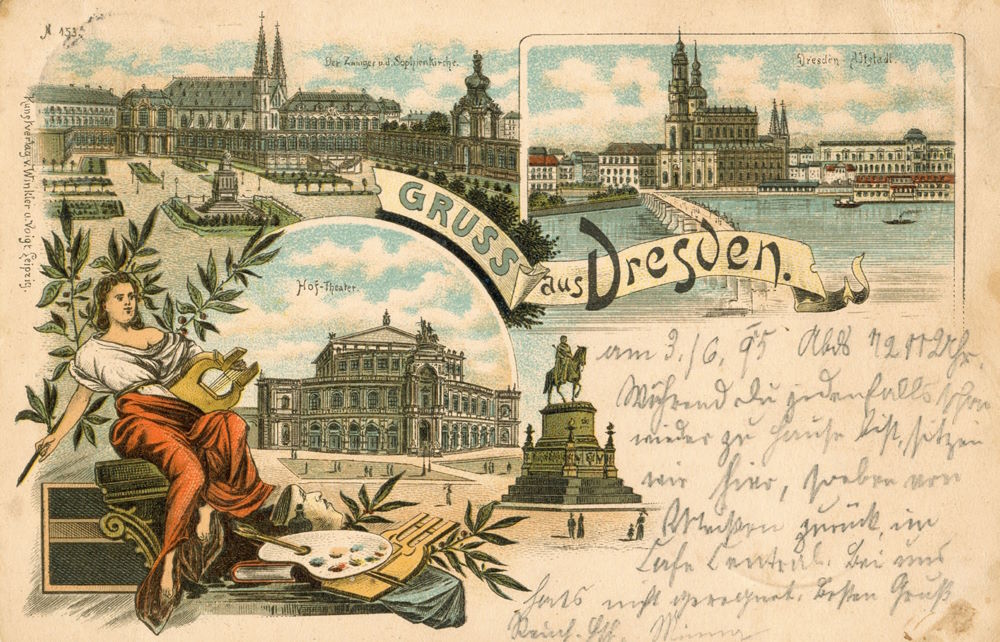 N 153.
Der Zwinger u.d. Sophienkirche.
Dresden Altstadt
Kunstverlag v. Winkler u. Voigt Leipzig.
GRUSS
aus Dresden.
Hof-Theater.
am 3./6. 95 Abds 1/2 11 Uhr.
Während du jedenfalls schon
wieder zu Hause bist, sitzen
wir hier, soeben von
Meißen zurück, im
Cafe Central. Bei uns
hats nicht geregnet. Besten Gruß